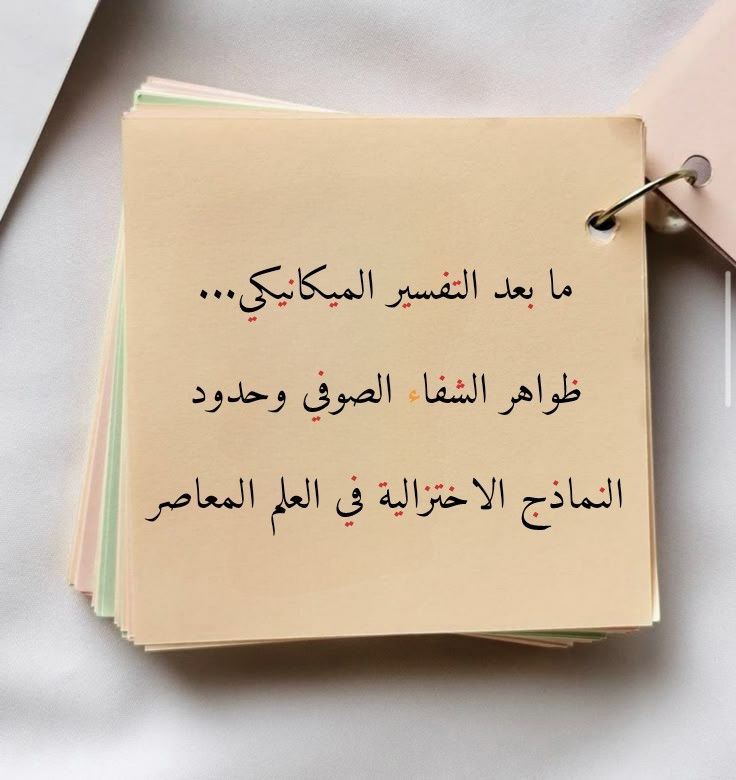 ما بعد التفسير الميكانيكي...
ظواهر الشفاء الصوفي وحدود
النماذج الاختزالية في العلم المعاصر